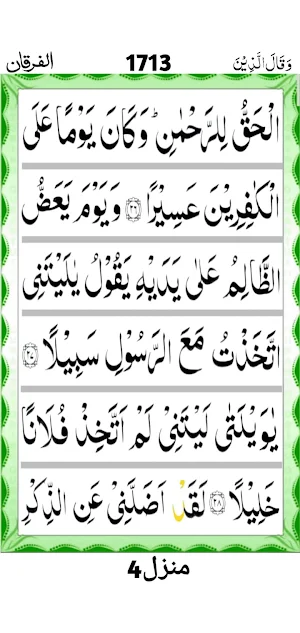 وَقَالَ الَّذِيْنَ 1713 الفرقان
الْحَقُّ لِلرَّحْمٰنِ ؕ وَكَانَ يَوْمًا عَلَى
الْكٰفِرِيْنَ عَسِيْرًا ۝۲۶ وَيَوْمَ يَعَضُّ
الظَّالِمُ عَلٰى يَدَيْهِ يَقُوْلُ يٰلَيْتَنِى
اتَّخَذْتُ مَعَ الرَّسُوْلِ سَبِيْلًا ۝۲۷
يٰوَيْلَتٰى لَيْتَنِىْ لَمْ اَتَّخِذْ فُلَانًا
خَلِيْلًا ۝۲۸ لَقَدْ اَضَلَّنِىْ عَنِ الذِّكْرِ
منزل4